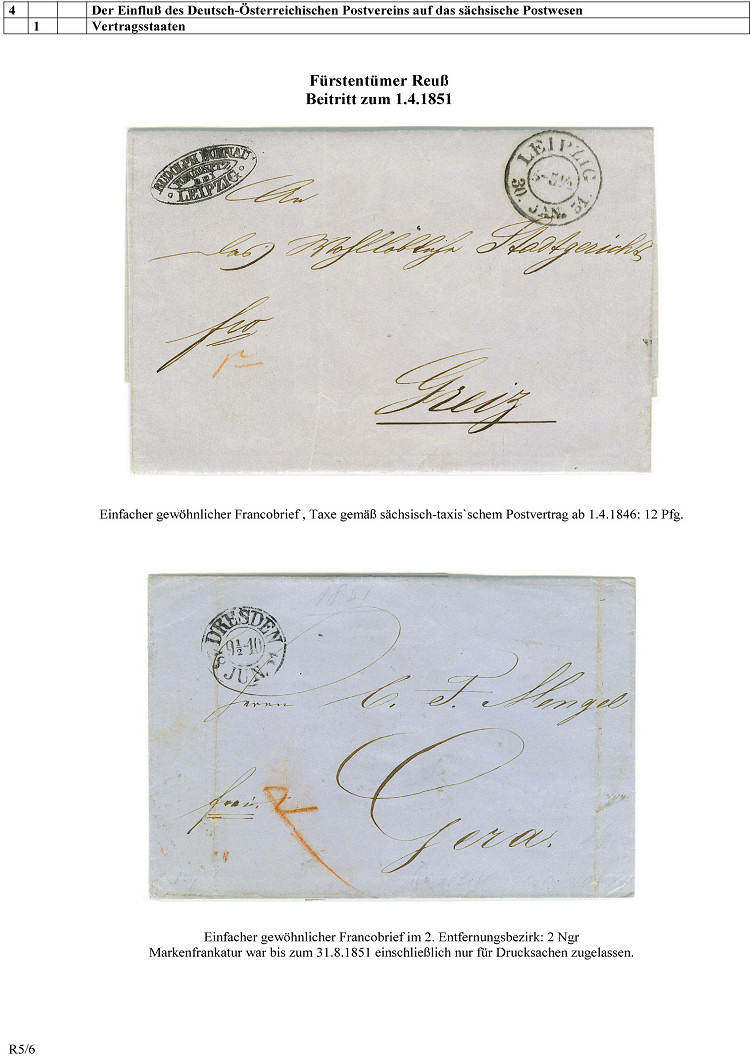 4 Der Einfluß des Deutsch-Österreichischen Postvereins auf das sächsische Postwesen
1 Vertragsstaaten
Fürstentümer Reuß
Beitritt zum 1.4.1851
RUDOLPH
LEIPZIG.
LEIPZIG
30. JAN. 51.
An
das Wohllöbliche Stadtgericht
fro
Greiz
Einfacher gewöhnlicher Francobrief , Taxe gemäß sächsisch-taxis`schem Postvertrag ab 1.4.1846: 12 Pfg.
DRESDEN
9½-10
JUN.
Herrn C. F. Mengel
Gera.
Einfacher gewöhnlicher Francobrief im 2. Entfernungsbezirk: 2 Ngr
Markenfrankatur war bis zum 31.8.1851 einschließlich nur für Drucksachen zugelassen.
R5/6